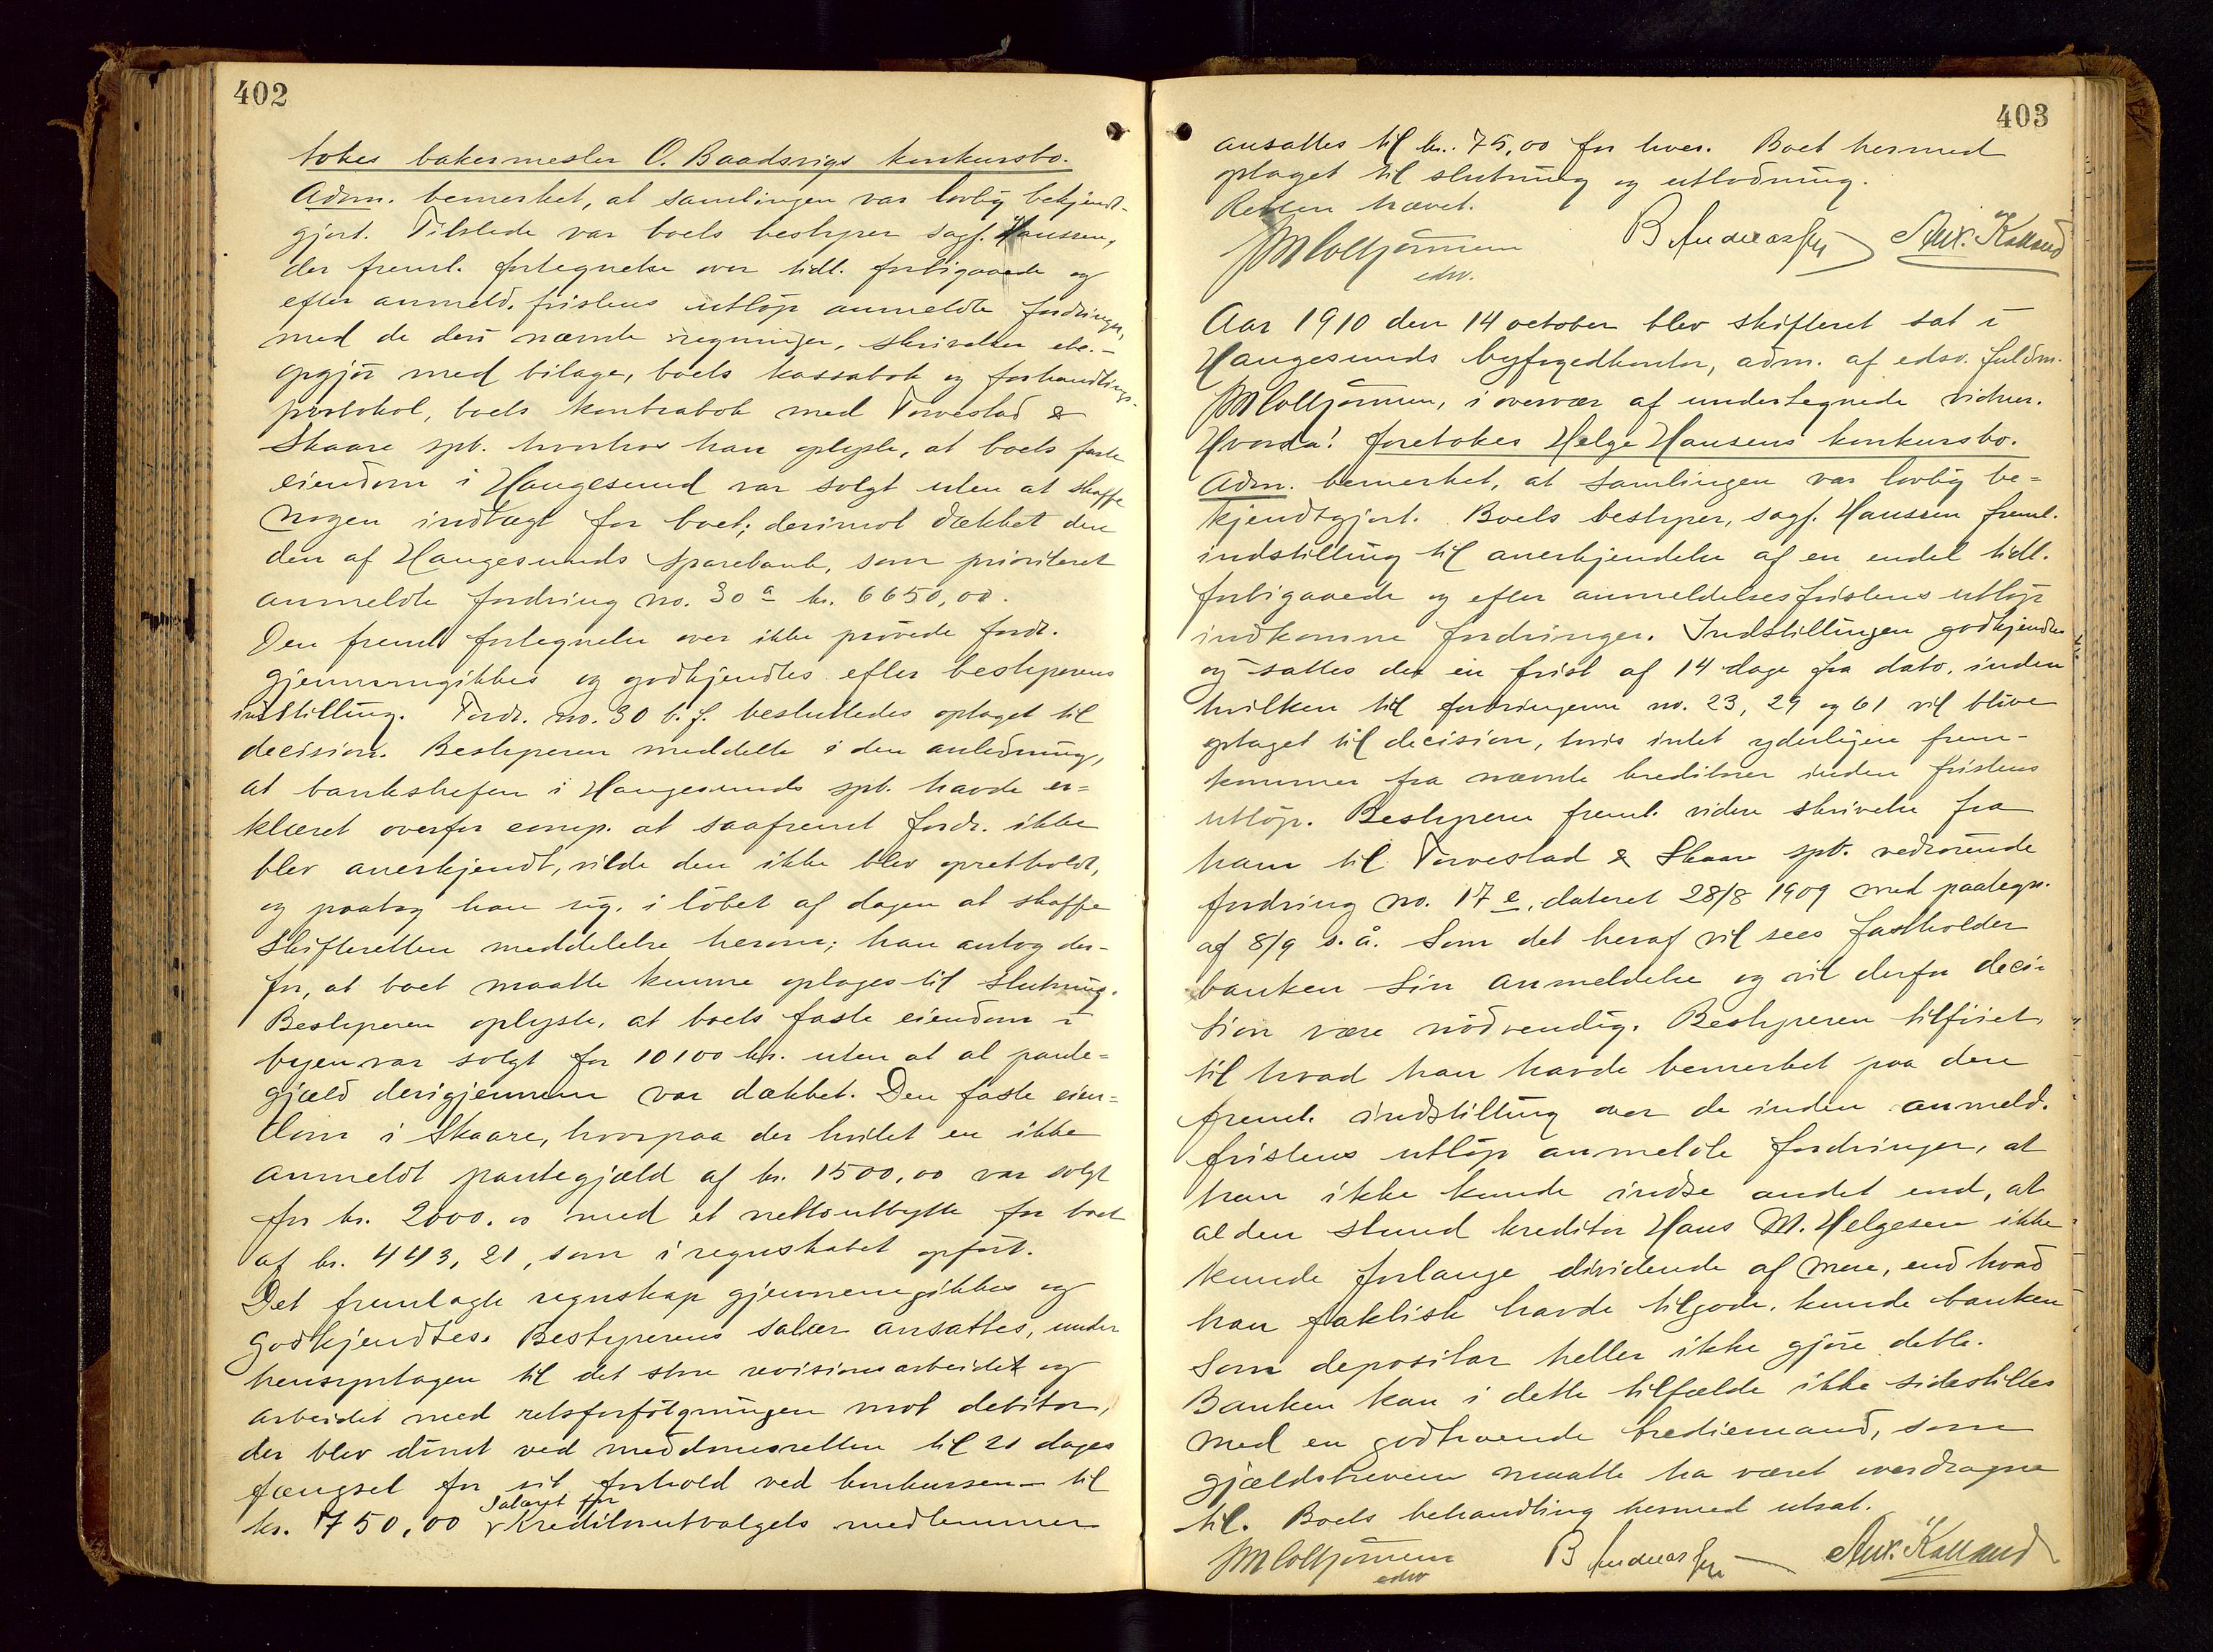 402
tokes bakermester O. Baadsvigs konkursbo.
Adm. bemerket, at samlingen var lovlig bekjendt-
gjort. Tilstede var boets bestyrer sagf. Haussen,
der freml. fortegnelse over tidl. forbigaaede og
efter anmeld. fristens utløp anmeldte fordringer,
med de deri nævnte regninger, skrivelser etc. -
opgjør med bilage, boets kassabok og forhandlings-
protokol, boets kontrabok med Torvestad &
Skaare spb. hvorhos han oplyste, at boets faste
eiendom i Haugesund var solgt uten at skaffe
nogen indtægt for boet; derimot dækket den
den af Haugesunds Sparebank, som prioriteret
anmeldte fordring no. 30 a kr. 6650,00.
Den freml. fortegnelse over ikke prøvede fordr.
gjennemgikkes og godkjendtes efter bestyrerens
indstilling. Fordr. no. 30 b. f. besluttedes optaget til
decision. Bestyreren meddelte i den anledning,
at bankchefen i Haugesunds spb. havde er=
klæret overfor comp. at saafremt fordr. ikke
blev anerkjendt, vilde den ikke blev opretholdt,
og paatog han sig i løbet af dagen at skaffe
skifteretten meddelelse herom; han antog der-
for, at boet maatte kunne optages til slutning.
Bestyreren oplyste, at boets faste eiendom i
byen var solgt for 10100 kr. uten at al pante=
gjæld derigjennem var dækket. Den faste eien=
dom i Skaare, hvorpaa der hvilet en ikke
anmeldt pantegjæld af kr. 1500,00 var solgt
for kr. 2000.00 med et nettoutbytte for boet
af kr. 443,21, som i regnskabet opført.
Det fremlagte regnskap gjennemgikkes og
godkjendtes. Bestyrerens salær ansattes, under
hensyntagen til det store revisionsarbeidet og
arbeidet med retsforfølgningen mot debitor,
der blev dømt ved meddomsretten til 21 dages
fængsel for sit forhold ved konkursen - til
kr. 750,00 Salæret for Kreditorutvalgets medlemmer
403
ansattes til kr. 75,00 for hver. Boet hermed
optaget til slutning og utlodning.
Retten hævet.
edsv.
B Andreassen
Anx. Kalland
Aar 1910 den 14 october blev skifteret sat i
Haugesunds byfogedkontor, adm. af edsv. fuldm.
i overvær af undertegnede vidner.
Hvorda! foretokes Helge Hansens konkursbo.
Adm. bemerket, at samlingen var lovlig be=
kjendtgjort. Boets bestyrer, sagf. Haussen freml.
indstilling til anerkjendelse af en endel tidl.
forbigaaede og efter anmeldelsesfristens utløp
indkomne fordringer. Indstillingen godkjendtes
og sattes der en frist af 14 dage fra dato, inden
hvilken tid fordringerne no. 23, 29 og 61 vil blive
optaget til decision, hvis intet yderligere frem-
kommer fra nævnte kreditorer inden fristens
utløp. Bestyreren freml. videre skrivelse fra
ham til Torvestad & Skaare spb. vedrørende
fordring no. 17 e, dateret 28/8 1909 med paategn.
af 8/9 s. å. Som det heraf vil sees fastholder
banken sin anmeldelse og vil derfor deci-
tion være nødvendig. Bestyreren tilføiet,
til hvad han havde bemerket paa den
freml. indstilling over de inden anmeld.
fristens utløp anmeldte fordringer, at
han ikke kunde indse andet end, at
al den stund kreditor Hans M. Helgesen ikke
kunde forlange dividende af mere, end hvad
han faktisk havde tilgode, kunde banken
som depositar heller ikke gjøre dette.
Banken kan i dette tilfælde ikke sidestilles
med en godtroende trediemand, som
gjældsbreven maatte ha været overdragne
til. Boets behandling hermed utsat.
edsv
B Andreassen
Anx. Kalland